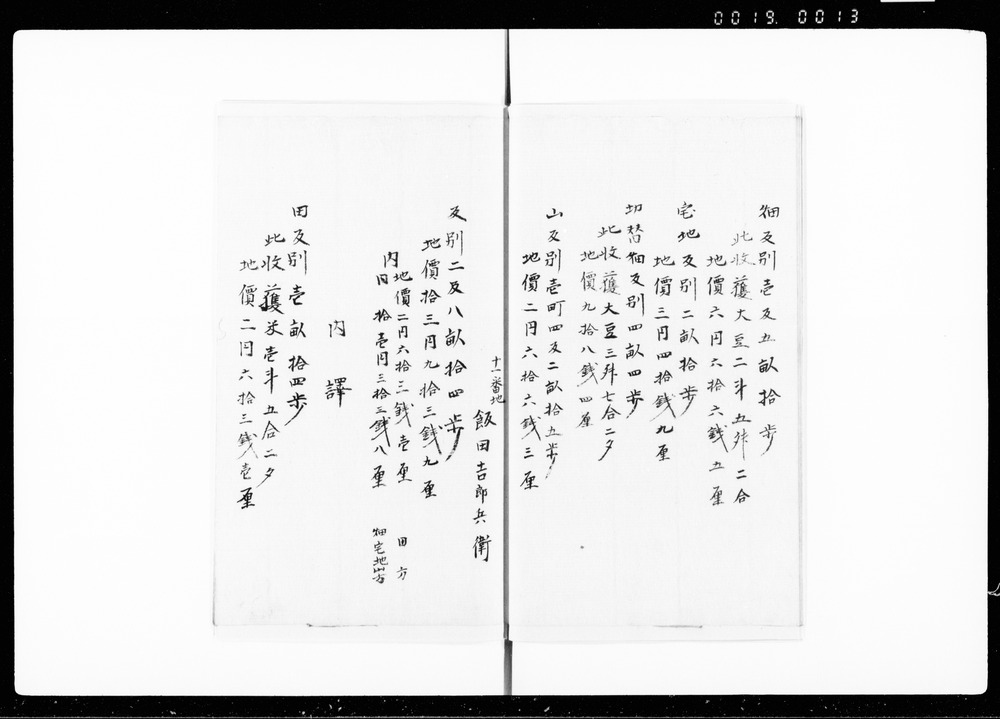 0019.0013
畑反別壱反五畝拾歩
此收獲大豆二斗五舛二合
地價六円六拾六錢五厘
宅地反別二畝拾歩
地價三円四拾錢九厘
切替畑反別四畝四歩
此收獲大豆三舛七合二夕
地價九拾八錢四厘
山反別壱町四反二畝拾五歩
地價二円六拾六錢三厘
十一番地
飯田吉郎兵衛
反別二反八畝拾四歩
地價拾三円九拾三錢九厘
内地價二円六拾三錢壱厘 田方
円拾壱円三拾三錢八厘 畑宅地山方
内譯
田反別壱畝拾四歩
此收獲米壱斗五合二夕
地價二円六拾三錢壱厘